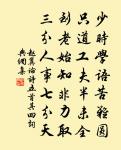 少時學語苦難圓
只道工夫半未全
到老始知非力取
三分人事七分天
趙翼論詩五首其四詞
典網集